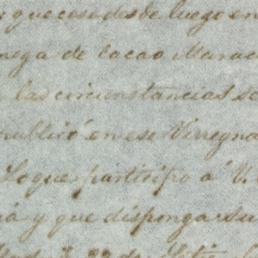 que cese desde luego en
nega de cacao Marac
las circunstancias se
publicó en ese Virreyna
Lo que participo á V.
y que disponga su